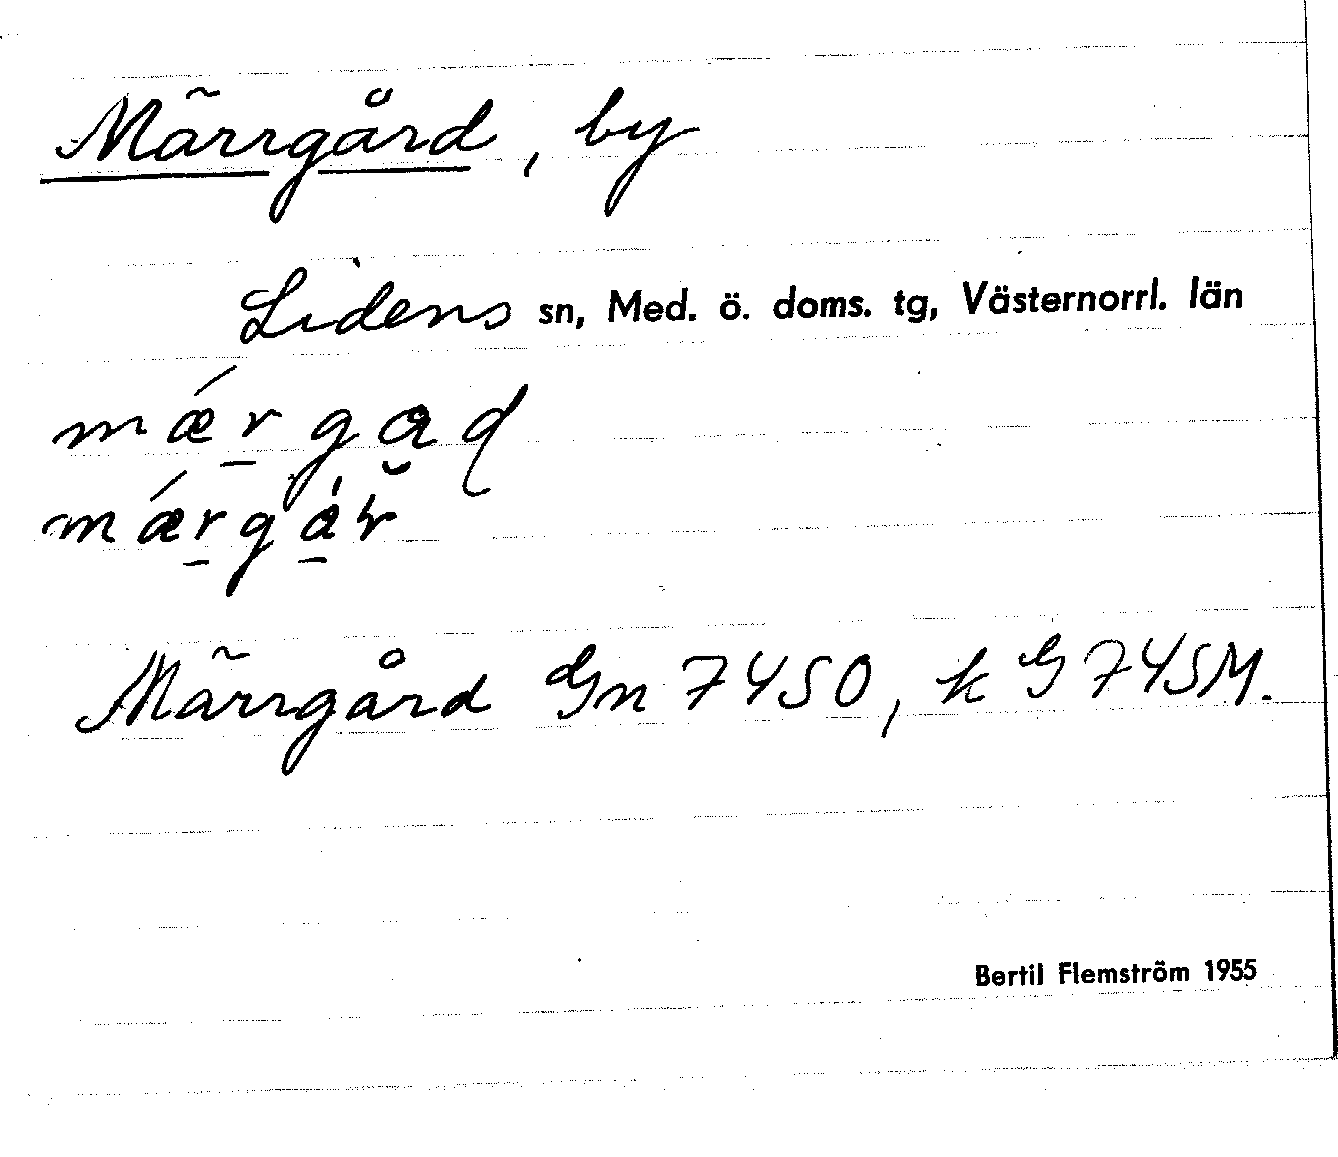 Märrgård, by
Lidens sn, Med. ö. doms. tg, Västernorrl. län
mǽr̠gad
mǽr̠gár
Märrgård Gn 7450, k G 745M.
Bertil Flemström 1955